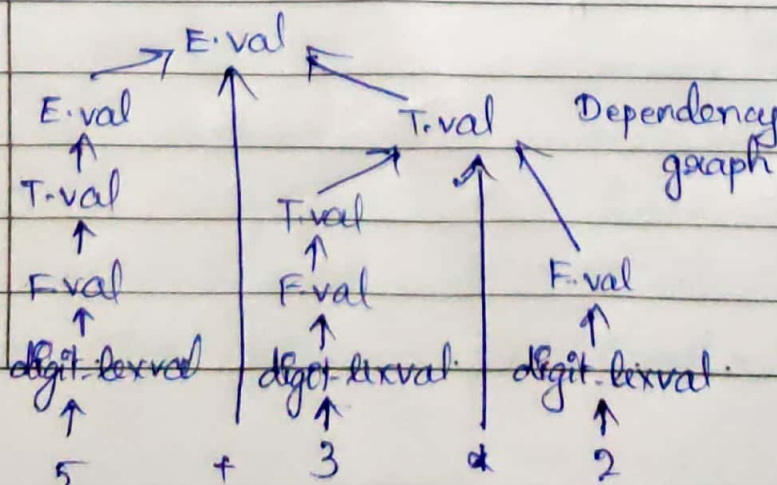 E.val
E.val T.val Dependency
graph
T.val T.val
F.val F.val F.val
digit.lexval digit.lexval. digit.lexval.
5 + 3 * 2